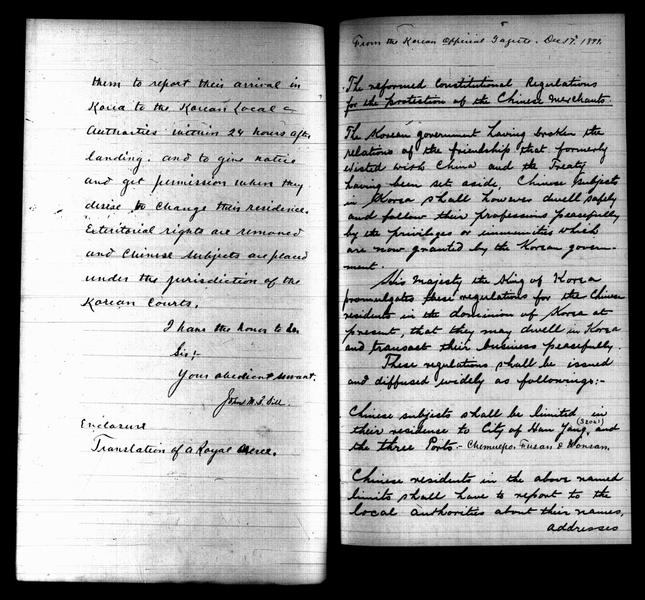 them to report their arrival in
Korea to the Korean Local
Authorities within 24 hours after
landing. and to give notice
and get permission when they
desire to change their residence.
Exteritorial rights are removed
and Chinese subjects are placed
under the jurisdiction of the
Korean Courts.
I have the honor to be
Sir:-
Your obedient servant.
John M. B. Sill
Enclosure
Translation of a Royal
From the Korean Official Gazette. Dec 17.
The reformed Constitutional Regulations
for the protection of the Chinese merchants.
The Korean government having broken the
relations of the friendship that formerly
existed with China and the Treaty
having been set aside, Chinese subjects
in Korea shall however dwell safely
and follow their professions peacefully
by the privileges or immunities which
are now granted by the Korean govern-
ment.
His Majesty the King of Korea
promulgates these regulations for the Chinese
residents in the dominion of Korea at
present, that they may dwell in Korea
and transact their business peacefully.
These regulations shall be issued
and diffused widely as followings:-
Chinese subjects shall be limited in
their residense to City of Han Yang, (Seoul) and
the three Ports - Chemulpo, Fusan & Wonsan.
Chinese residents in the above named
limits shall have to report to the
local authorities about their names,
addresses